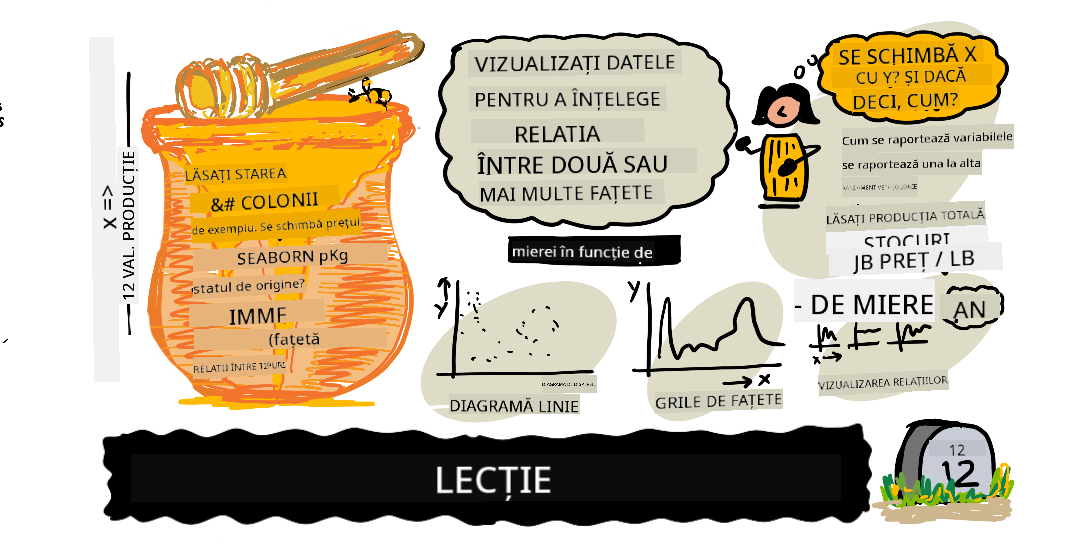 X =>
12 VAL. PRODUCȚIE
LĂSAȚI STAREA
&# COLONII
de exemplu. Se schimbă prețul
SEABORN pKg
statul de origine?
IMME
(fațetă
RELATII ÎNTRE TIPURI
VIZUALIZAȚI DATELE
PENTRU A ÎNȚELEGE
RELATIA
ÎNTRE DOUĂ SAU
MAI MULTE FAȚETE
mierei în funcție de
y
DIAGRAMĂ LINIE
y
x
GRILE DE FAȚETE
SE SCHIMBĂ X
CU Y? ȘI DACĂ
DECI, CUM?
Cum se raportează variabilele
se raportează una la alta
LĂSAȚI PRODUCȚIA TOTALĂ
STOCURI
JB PREȚ / LB
- DE MIERE
AN
x
VIZUALIZAREA RELAȚIILOR
LECȚIE
12
12